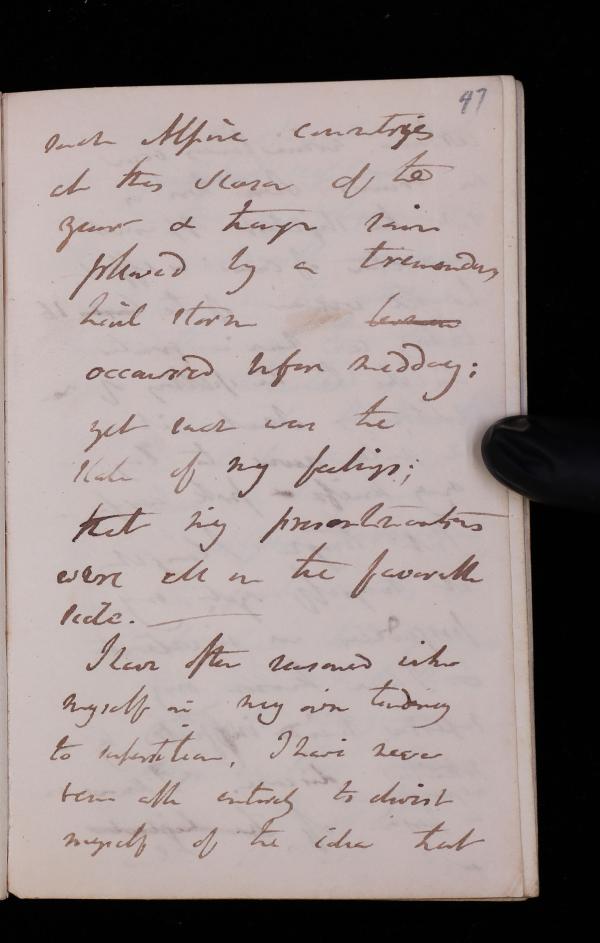 47
such Alpine countries
at this season of the
year & though rain
followed by a tremendous
hail storm
occurred before midday;
yet such was the
state of my feelings;
that my presentiments
were all on the favorable
side. —
I have often reasoned with
myself on my own tendency
to superstition, I have never
been able entirely to divest
myself of the idea that